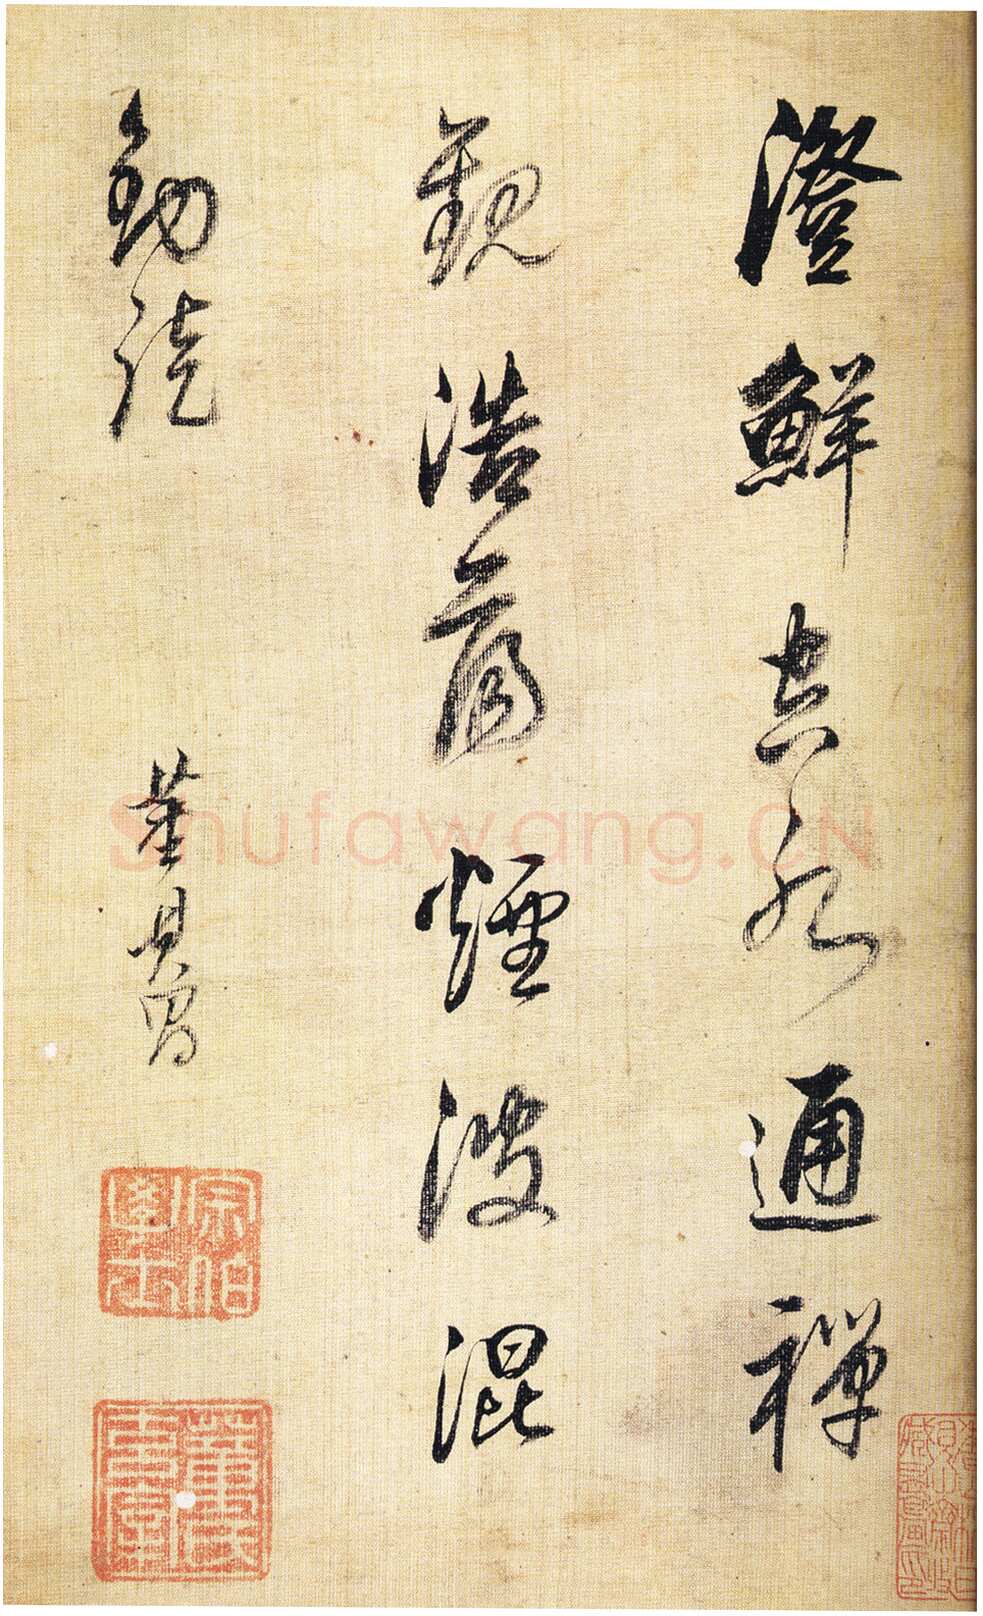 澄鮮通禪
觀浩蕩煙波混
釣徒 董其昌
宗伯
學士
董氏
Shufawang.CN